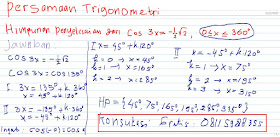 Persamaan Trigonometri
Himpunan Penyelesaian dari Cos 3x = -½√2, 0≤x≤360°
Jawaban
Cos 3x = -½√2
Cos 3x = cos 135°
I 3x = 135° + k.360°
x = 45° + k.120°
II 3x = -135° + k.360°
x = -45° + k.120°
Ingat: cos(-θ) = cos θ
I x = 45° + k.120°
k = 0 → x = 45°
k = 1 → x = 165°
k = 2 → x = 285°
II x = -45° + k.120°
k = 1 → x = 75°
k = 2 → x = 195°
k = 3 → x = 315°
HP = {45°, 75°, 165°, 195°, 285°, 315°}
Konsultasi Gratis: 08115988355